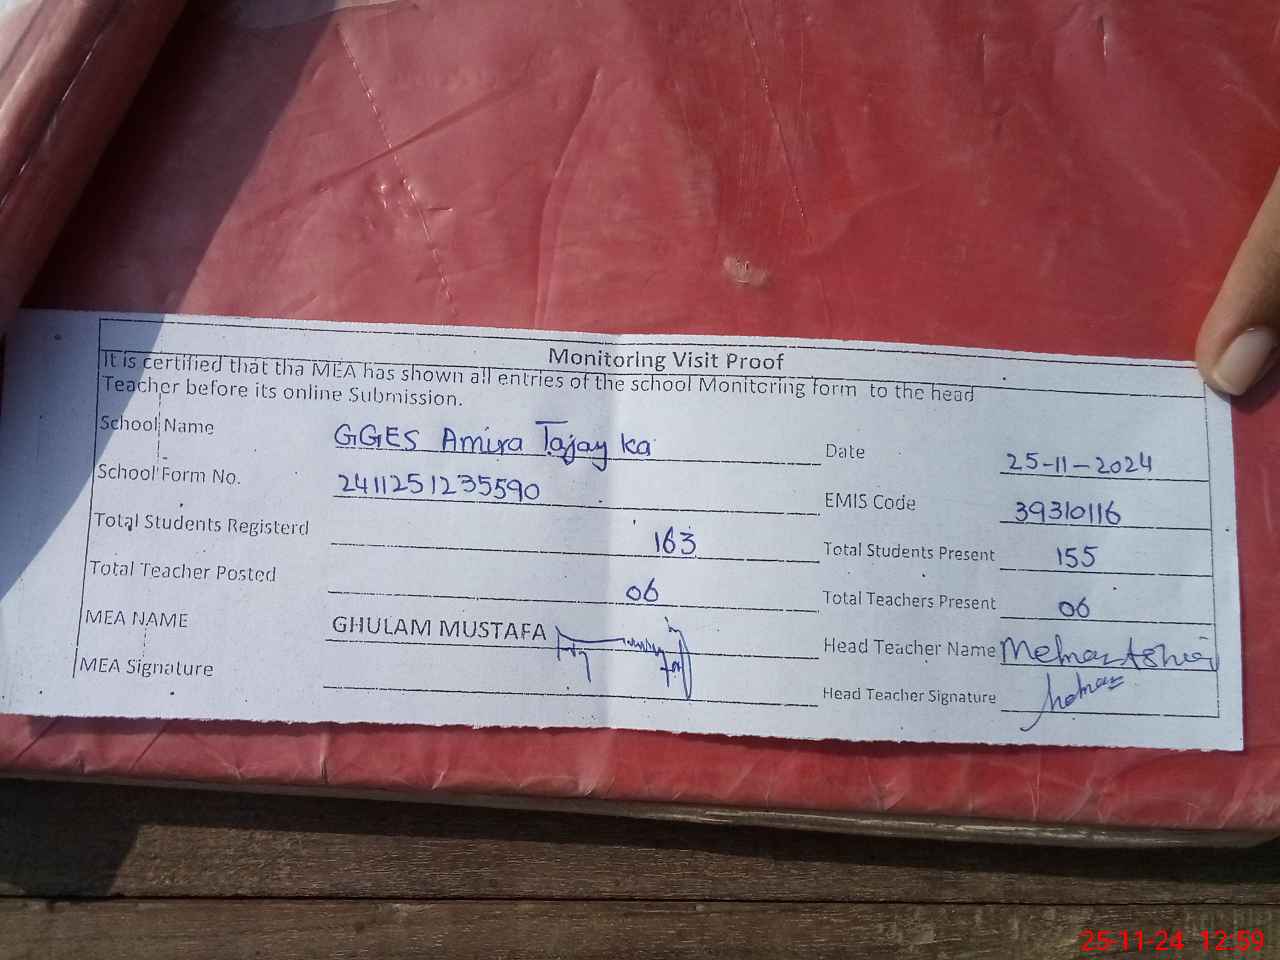 Monitoring Visit Proof
It is certified that tha MEA has shown all entries of the school Monitoring form to the head
Teacher before its online Submission.
School Name GGES Amira Tajay ka Date 25-11-2024
School Form No. 2411251235590 EMIS Code 39310116
Total Students Registerd 163 Total Students Present 155
Total Teacher Posted 06 Total Teachers Present 06
MEA NAME GHULAM MUSTAFA Head Teacher Name
MEA Signature Head Teacher Signature
25-11-24 12:59